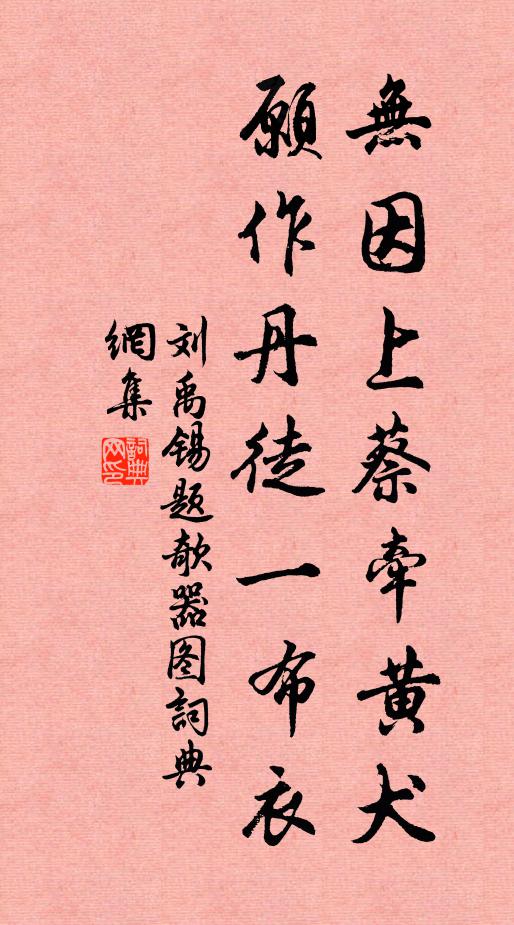 無因上蔡牽黄犬
願作丹徒一布衣
刘禹锡题欹器图詞典
網集
詞典
网印